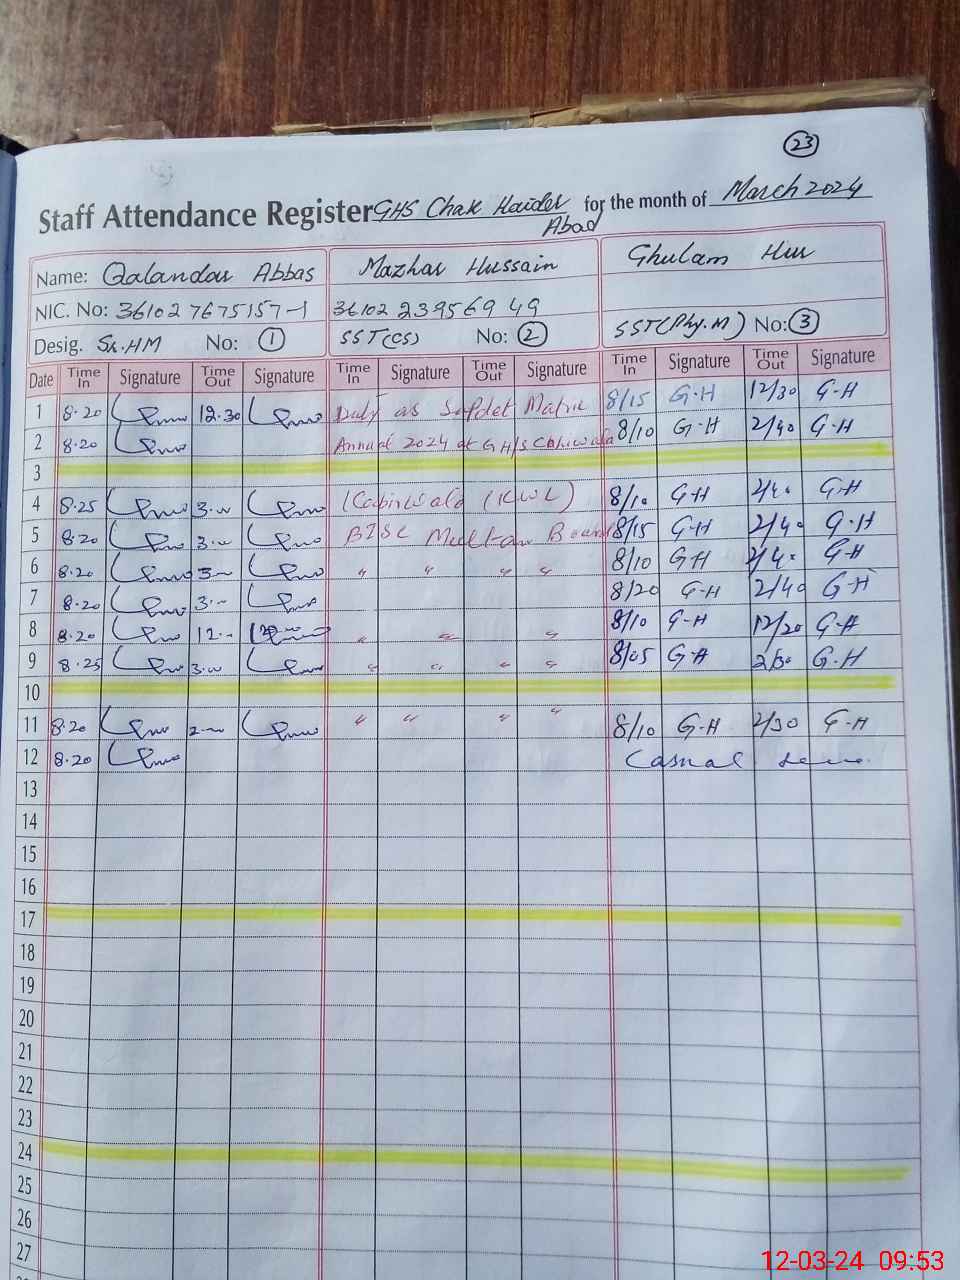 23
Staff Attendance Register GHS Chak Haider Abad for the month of March 2024
Name: Qalandar Abbas Mazhar Hussain Ghulam Hur
NIC. No: 36102 7675157-1 36102 239569 49
Desig. Sr.HM No: 1 SST(CS) No: 2 SST(Phy.M) No: 3
Date Time In Signature Time Out Signature Time In Signature Time Out Signature Time In Signature Time Out Signature
1 8.20 12.30 Duty as Supdet Matric 8/15 G.H 12/30 G-H
2 8.20 Annual 2024 at GH/S 8/10 G-H 2/40 G-H
3
4 8.25 3.00 (KWL) 8/10 G-H 2/40 G-H
5 8.20 3.00 BISE Multan Board 8/15 G-H 2/40 G.H
6 8.20 3- " " " " 8/10 GH 2/40 G-H
7 8.20 3.- 8/20 G-H 2/40 G-H
8 8.20 12.- " " " 8/10 G-H 12/20 G-H
9 8.25 3.00 " " " " 8/05 G-H 2/30 G.H
10
11 8.20 2- " " " " 8/10 G-H 2/30 G-H
12 8.20 Casual
13
14
15
16
17
18
19
20
21
22
23
24
25
26
27
12-03-24 09:53